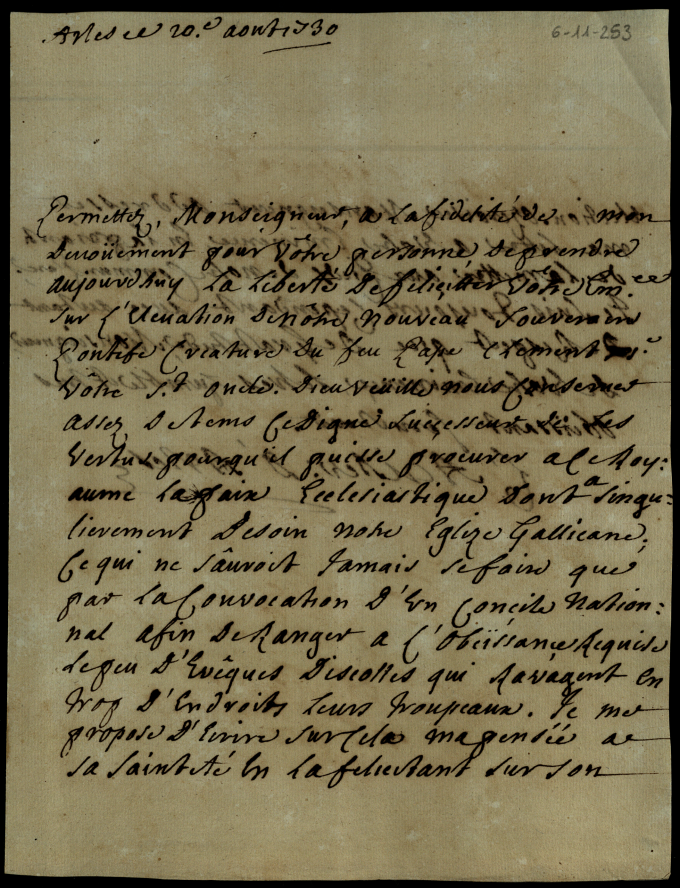 Arles ce 20.e aout 1730
6-11-253
Permettez, Monseigneur, a la fidelité de mon
devoüement pour Vôtre personne, de prendre
aujourdhuy la liberté de feliciter Vôtre Em.ce
sur l'Elevation de nôtre nouveau Souverain
Pontife Creature du feu Pape Clement
Vôtre S.t oncle. Dieu veuille nous Conserver
assez de tems Ce Digne Successeur de ses
Vertus pourqu'il puisse procurer a Ce Roy:
aume la paix Ecclesiastique Dont a Singu:
lierement Besoin notre Eglize Gallicane;
Ce qui ne sâuroit Jamais se faire que
par la Convocation D'Un Concile Nation:
nal afin de Ranger a l'Obeïssance Requise
le peu D'Evêques Discolles qui Ravàgent En
trop D'Endroits Leurs troupeaux. Je me
propose D'Ecrire sur Cela ma pensée a
sa Sainteté En la felicitant sur son